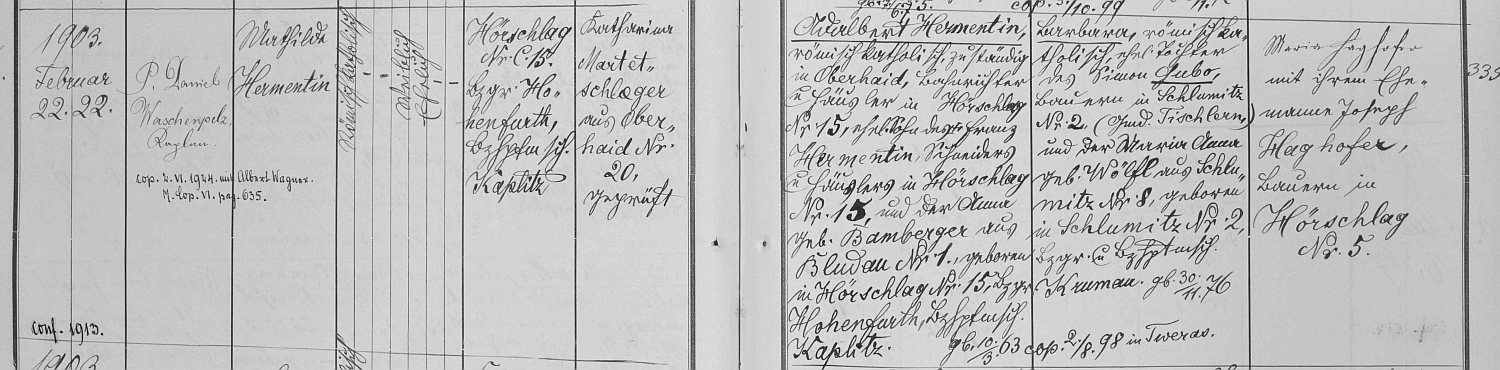 1903.
Februar
22. 22.
Conf. 1913.
P. Daniel
Waschenpelz,
Kaplan.
cop. 2. VI. 1924. mit Albert Wagner.
M. Cop. VI. pag. 635.
Mathilde
Hermentin
Römischkatholisch
Weiblich
Ehelich
Hörschlag
Nr. C. 15.
Bzgr. Ho-
henfurth,
Bzhptm sch.
Kaplitz
Katharina
Martet-
schlæger
aus Ober-
haid Nr.
20,
geprüft
cop. 5./10. 99
Adalbert Hermentin,
römisch katholisch, zuständig
in Oberhaid, Bahnrichter
u Häusler in Hörschlag
Nr 15, ehel. Sohn des Franz
Hermentin, Schneiders
u Häuslers in Hörschlag
Nr. 15, und der Anna
geb. Bamberger aus
Bludau Nr. 1., geboren
in Hörschlag Nr. 15, Bzgr
Hohenfurth, Bzhptmsch.
Kaplitz. gb. 10/3. 63 cop. 2./8. 98 in Tweras.
Barbara, römisch ka-
tholisch, ehel. Tochter
des Simon Gubo,
Bauern in Schlumitz
Nr. 2. (Gmd. Tischlern)
und der Maria Anna
geb. Wölfl aus Schlu-
mitz Nr. 8, geboren
in Schlumitz Nr. 2,
Bzgr. u Bzhptmsch.
Krumau. gb. 30./11. 76
Maria Haghofer
mit ihrem Ehe-
manne Joseph
Haghofer,
Bauern in
Hörschlag
Nr. 5.
1903